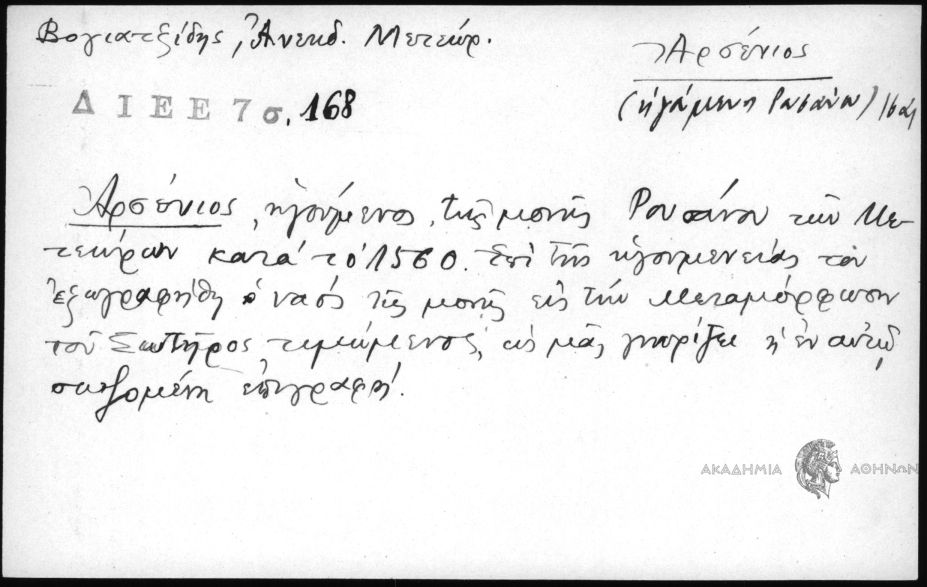 Βογιατζίδης, Ἀνεκδ. Μετεώρ.
Ἀρσένιος
Δ Ι Ε Ε 7 σ. 168
(ἡγούμενος Ρουσάνου)
Ἀρσένιος, ἡγούμενος τῆς μονῆς Ρουσάνου τῶν Με-
τεώρων κατὰ τὸ 1560. Ἐπὶ τῆς ἡγουμενείας του
ἐζωγραφήθη ὁ ναὸς τῆς μονῆς εἰς τὴν Μεταμόρφωσιν
τοῦ Σωτῆρος τιμώμενος, ὡς μᾶς γνωρίζει ἡ ἐν αὐτῷ
σωζομένη ἐπιγραφή.
ΑΚΑΔΗΜΙΑ ΑΘΗΝΩΝ